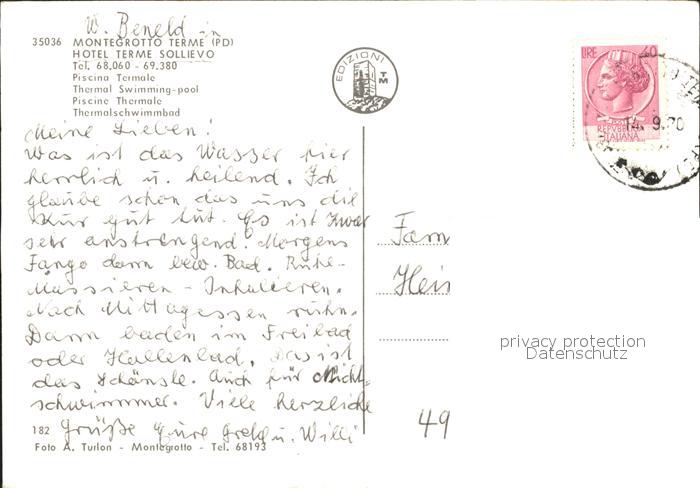 W. Beneld in
35036 MONTEGROTTO TERME (PD)
HOTEL TERME SOLLIEVO
Tel. 68.060 - 69.380
Piscina Termale
Thermal Swimming-pool
Piscine Thermale
Thermalschwimmbad
EDIZIONI
TM
LIRE 40
REPVBBLICA
ITALIANA
14.9.70
Meine Lieben!
Was ist das Wasser hier
herrlich u. heilend. Ich
glaube schon das uns die
Kur gut tut. Es ist zwar
sehr anstrengend. Morgens
Fango dann bew. Bad. Ruhe-
Massieren - Inhalieren.
Nach Mittagessen ruhn.
Dann baden im Freibad
oder Hallenbad. Das ist
das Schönste. Auch für Nicht-
schwimmer. Viele herzliche
Grüße Eure Gretel u. Willi
Fam
Heis
49
privacy protection
Datenschutz
182
Foto A. Turlon - Montegrotto - Tel. 68193